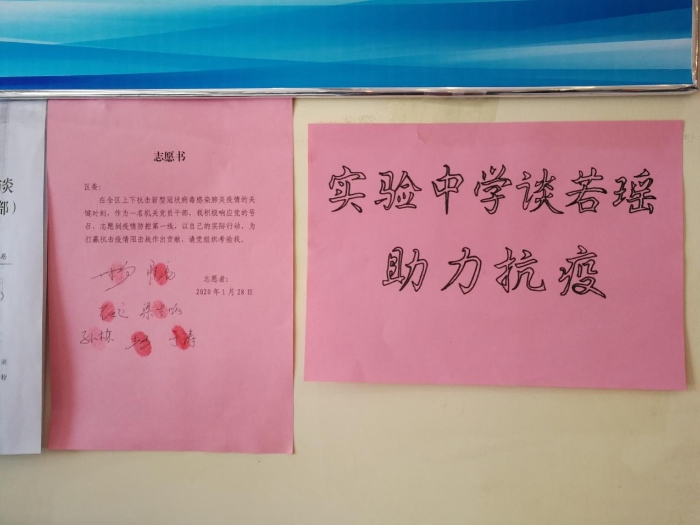 炎
部）
》
志愿书
区委：
在全区上下抗击新型冠状病毒感染肺炎疫情的关
键时刻，作为一名机关党员干部，我积极响应党的号
召，志愿到疫情防控第一线，以自己的实际行动，为
打赢抗击疫情阻击战作出贡献，请党组织考验我。
志愿者：
2020年1月28日
孙栋
实验中学谈若瑶
助力抗疫